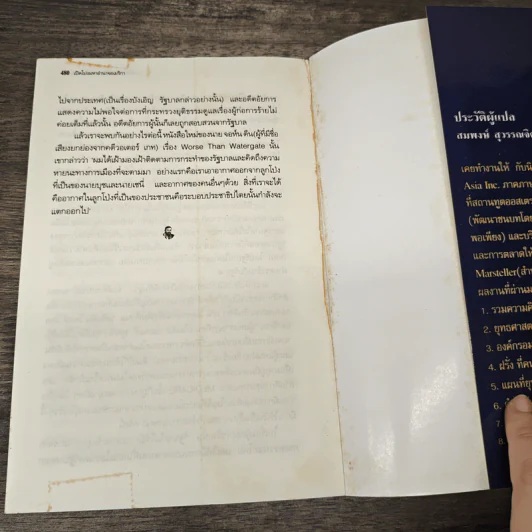 480 เปิดโปงมหาอำนาจอเมริกา
ไปจากประเทศ(เป็นเรื่องบังเอิญ รัฐบาลกล่าวอย่างนั้น) และอดีตอัยการ
แสดงความไม่พอใจต่อการที่กระทรวงยุติธรรมดูแลเรื่องผู้ก่อการร้ายไม่
ค่อยเต็มที่แล้วนั้น อดีตอัยการผู้นั้นก็เลยถูกสอบสวนจากรัฐบาล
แล้วเราจะพบกันอย่างไรต่อนี้ หนังสือใหม่ของนาย จอห์น ดีน(ผู้ที่มีชื่อ
เสียงยกย่องจากคดีวอเตอร์ เกท) เรื่อง Worse Than Watergate นั้น
เขากล่าวว่า "ผมได้เฝ้ามองเฝ้าติดตามการกระทำของรัฐบาลและคิดถึงความ
หายนะทางการเมืองที่จะตามมา อย่างแรกคือเราเอาอากาศออกจากลูกโป่ง
ที่เป็นของนายบุชและนายเชนี่ และอากาศของคนอื่นๆด้วย สิ่งที่เราจะได้
คืออากาศในลูกโป่งที่เป็นของประชาชนคือระบอบประชาธิปไตยนั้นกำลังจะ
แตกออกไป"
ประวัติผู้แปล
สมพงษ์ สุวรรณจิต
เคยทำงานให้ กับนิ
Asia Inc. ภาคภา
ที่สถานทูตออสเตร
(พัฒนาชนบทโดย
พอเพียง) และบริ
และการตลาดให้
Marsteller(สำ
ผลงานที่ผ่านม
1. รวมความคิ
2. ยุทธศาสต
3. องค์กรอม
4. ฝรั่ง ที่คน
5. แผนที่ยุ
6.
7.
8.